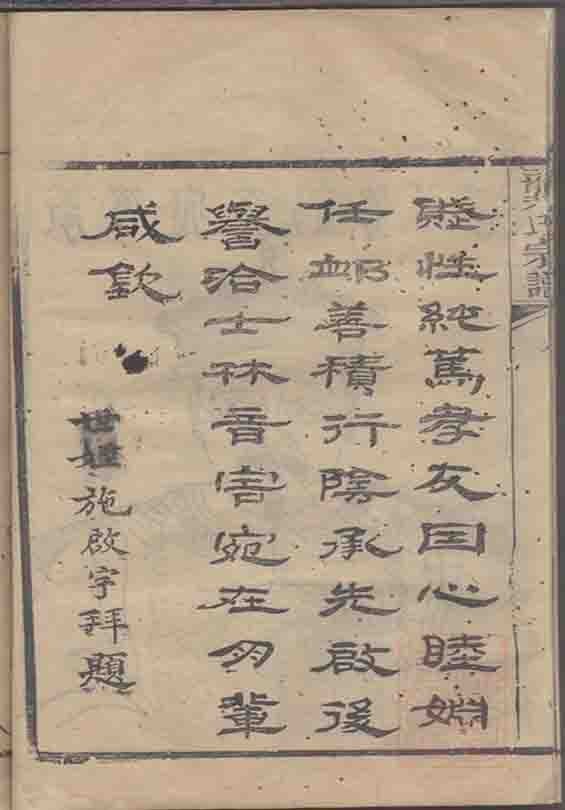 氏宗譜
性純篤孝友因心睦婣
任卹善積行陰承先啟後
譽洽士林音容宛在輩
咸欽
世姪施啟宇拜題